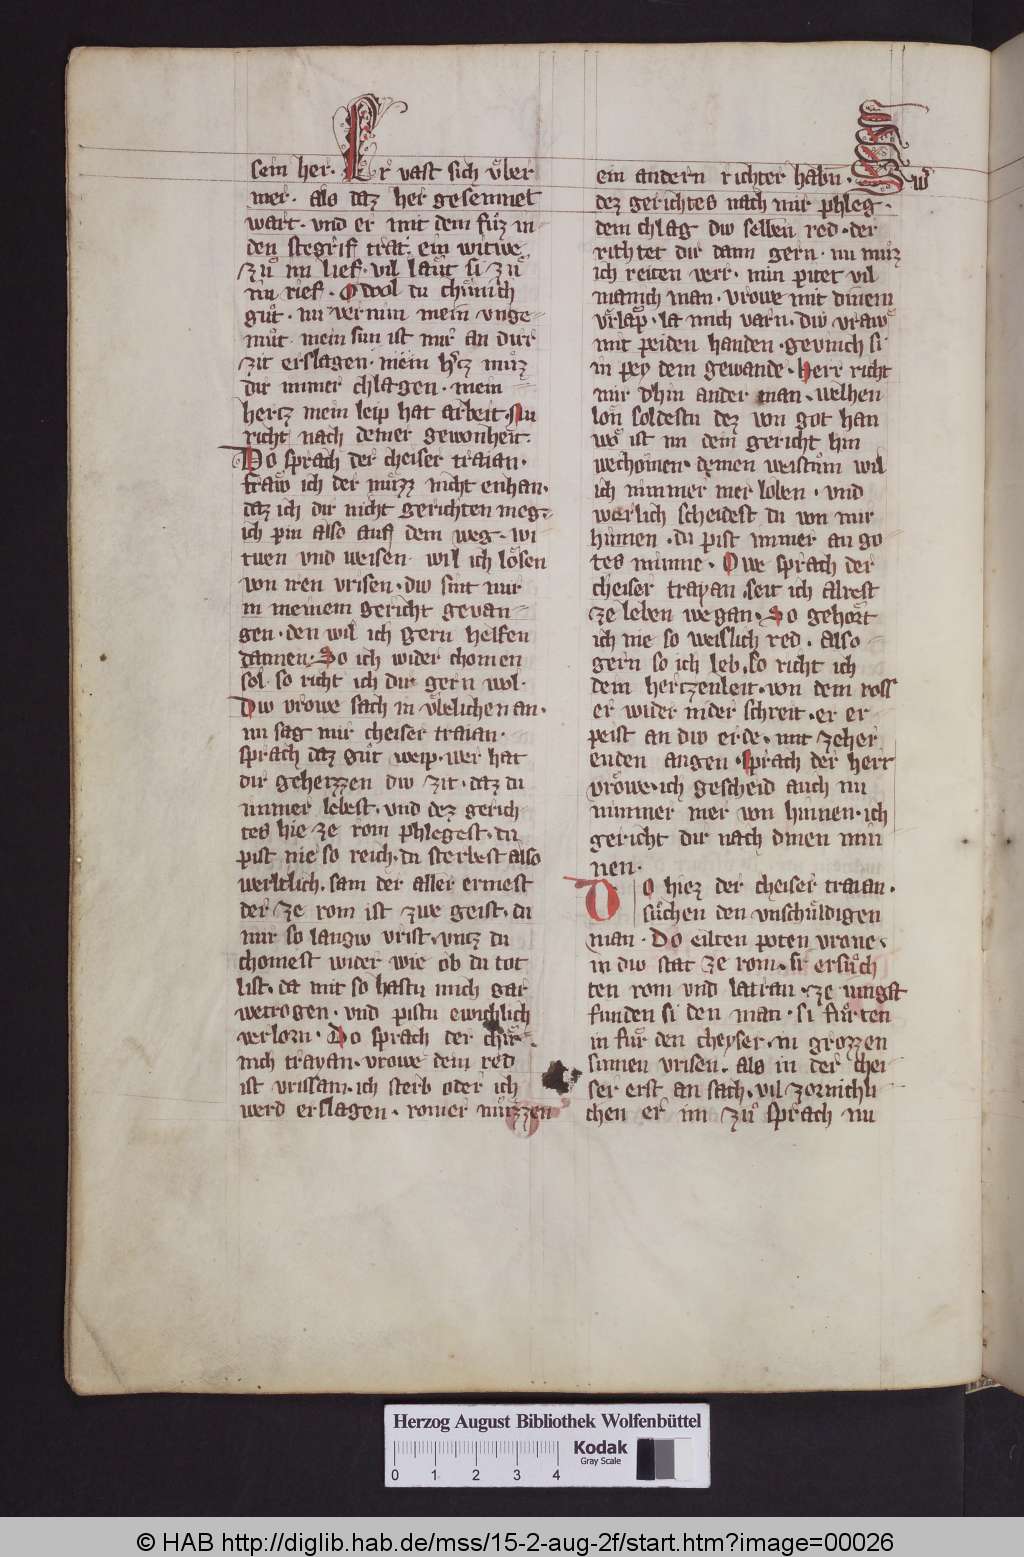 sein her. Er vast sich vͤber
mer. als daz her gesemnet
wart. vnd er mit dem fuͤz in
den stegriff trat. ein witwe
zuͦ im lief. vil laut si zuͦ
im rief. O wol du chuͤnich
guͦt. nu vernim mein vnge
muͦt. mein sun ist mir an dirr
zit erslagen. mein hercz muͦz
dir immer chlagen. mein
hertz mein leip hat arbeit. Nu
richt nach deiner gewonheit.
Do sprach der cheiser traian.
fraw ich der muͦzz nicht enhan.
daz ich dir nicht gerichten meg.
ich pin also auff dem weg. wi
twen vnd weisen. wil ich loͤsen
von iren vrisen. diw sint mir
in meinem gericht gevan
gen. den wil ich gern helfen
dannen. So ich wider chomen
sol. so richt ich dir gern wol.
Diw vrowe sach in vͤbelichen an.
nu sag mir cheiser traian.
sprach daz guͦt weip. wer hat
dir geheizzen diw zit. daz du
immer lebest. vnd dez gerich
tes hie ze rom phlegest. du
pist nie so reich. du sterbest also
werltlich. sam der aller ermest
der ze rom ist. zwe geist. du
mir so langiw vrist. vntz du
chomest wider wie ob du tot
list. da mit so hastu mich gar
wetrogen. vnd pistu ewichlich
verlorn. Do sprach der chuͤ
nich trayan. vrowe dein red
ist vrissam. ich sterb oder ich
werd erslagen. romer muͤzzen
ein andern richter habn. Sw͛
dez gerichtes nach mir phleg.
dem chlag diw selben red. der
richtet dir dann gern. nu muͦz
ich reiten verr. min pitet vil
manich man. vrowe mit dinem
vrlap. la mich varn. diw vraw
mit peiden handen. gevinch si
in pey dem gewande. Herr richt
mir dhin ander man. welhen
lon soldestu dez von got han
wo ist nu dein gericht hin
wechomen. deinen weistuͦm wil
ich nimmer mer loben. vnd
waerlich scheidest du von mir
hinnen. du pist immer an go
tes minne. Owe sprach der
cheiser trayan. seit ich alrest
ze leben wegan. So gehort
ich nie so weislich red. also
gern so ich leb. so richt ich
dem hertzenleit. von dem ross
er wider nider schreit. er er
peist an diw erde. mit zeher
enden augen. Sprach der herr
vrowe. ich gescheid auch nu
nimmer mer von hinnen. ich
gericht dir nach dinen min
nen.
Do hiez der cheiser traian.
suͤchen den vnschuͤldigen
man. Do eilten poten vrone.
in diw stat ze rom. si ersuͦch
ten rom vnd latran. ze iungst
funden si den man. si fuͦrten
in fuͤr den cheyser. in grozzen
sinnen vrisen. als in der chei
ser erst an sach. vil zornichli
chen er im zuͦ sprach nu
Herzog August Bibliothek Wolfenbüttel
Kodak
Gray Scale
0 1 2 3 4
© HAB http://diglib.hab.de/mss/15-2-aug-2f/start.htm?image=00026